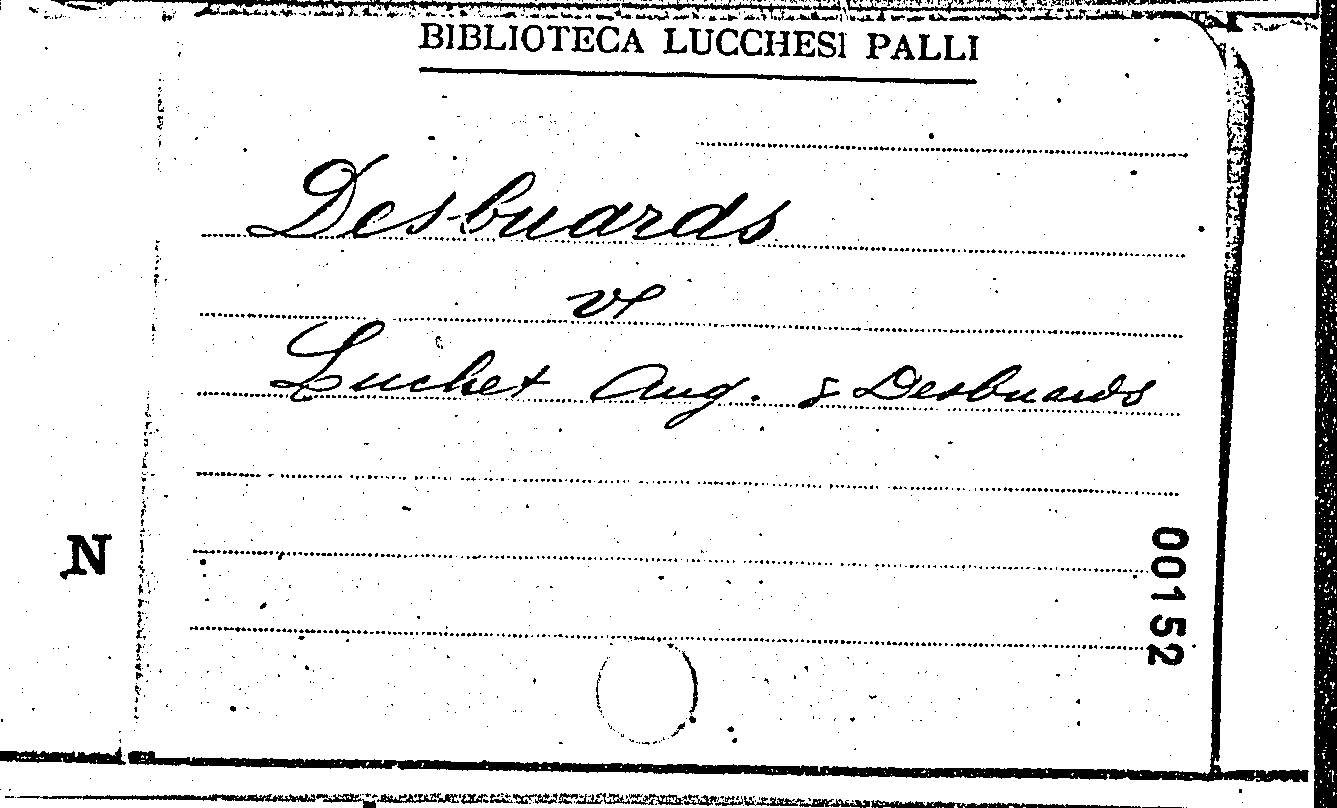 BIBLIOTECA LUCCHESI PALLI
Desbuards
vs
Luchet Aug. & Desbuards
N
00152